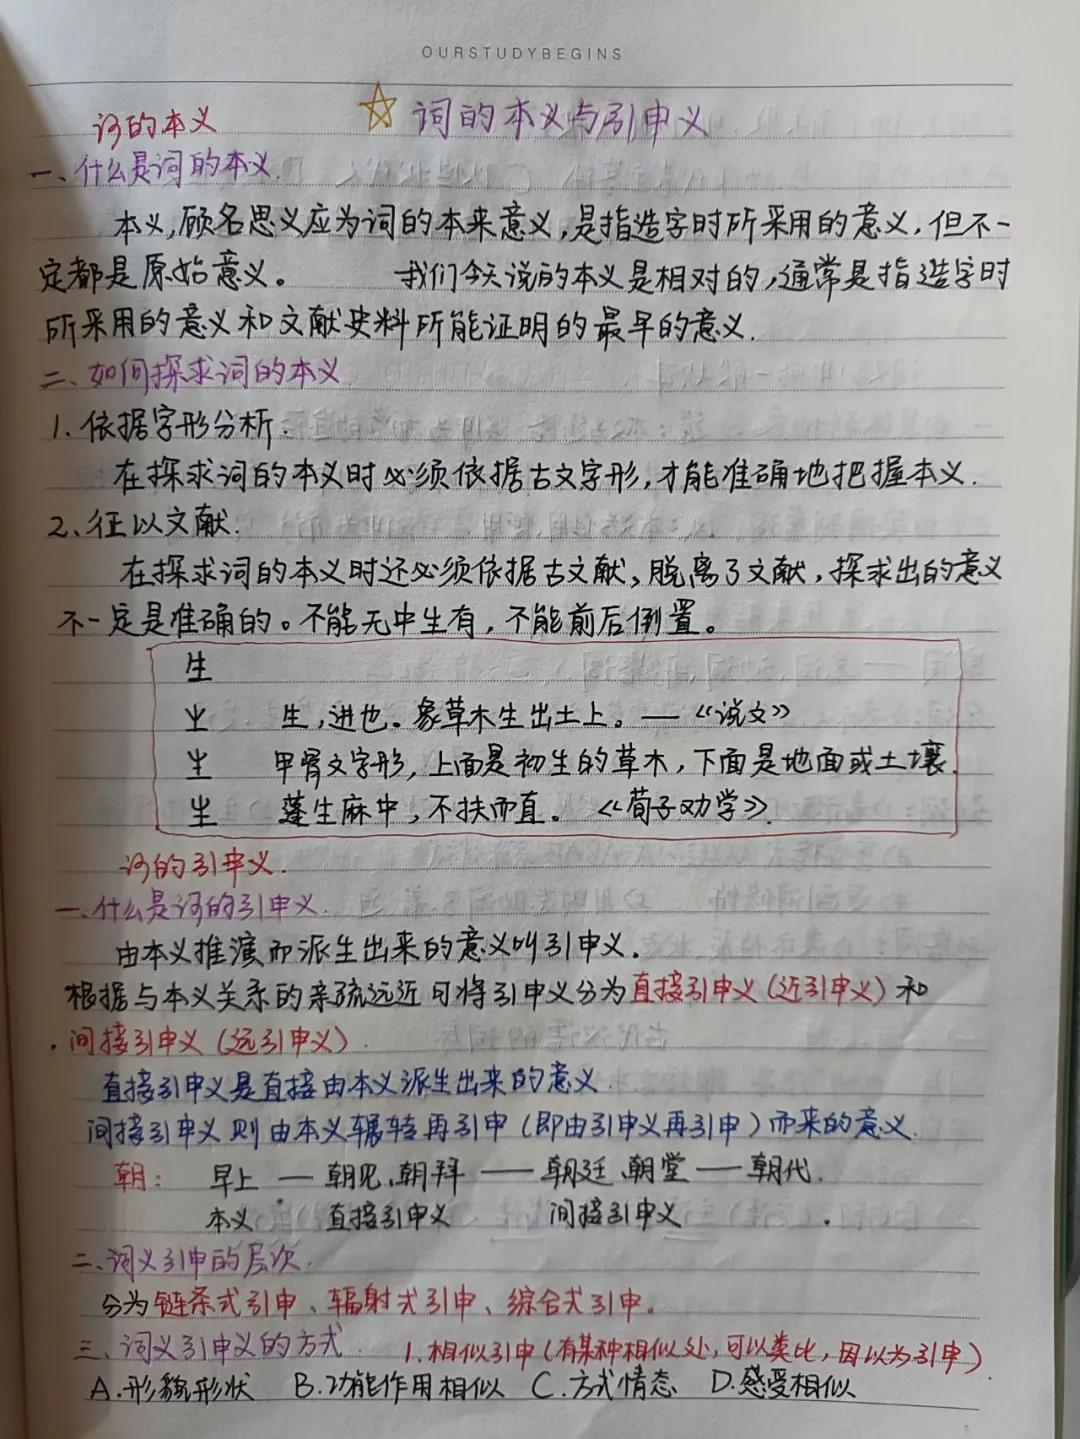 OURSTUDYBEGINS
☆ 词的本义与引申义
词的本义
一、什么是词的本义.
本义,顾名思义应为词的本来意义,是指造字时所采用的意义,但不一
定都是原始意义。 我们今天说的本义是相对的,通常是指造字时
所采用的意义和文献史料所能证明的最早的意义.
二、如何探求词的本义.
1.依据字形分析.
在探求词的本义时必须依据古文字形,才能准确地把握本义.
2、征以文献.
在探求词的本义时还必须依据古文献,脱离了文献,探求出的意义
不一定是准确的。不能无中生有,不能前后倒置。
生
生,进也。象草木生出土上。—《说文》
甲骨文字形,上面是初生的草木,下面是地面或土壤.
蓬生麻中,不扶而直。《荀子劝学》.
词的引申义.
一、什么是词的引申义.
由本义推演而派生出来的意义叫引申义.
根据与本义关系的亲疏远近可将引申义分为直接引申义(近引申义)和
间接引申义(远引申义).
直接引申义是直接由本义派生出来的意义.
间接引申义则由本义辗转再引申(即由引申义再引申)而来的意义.
朝: 早上 — 朝见、朝拜 — 朝廷、朝堂 — 朝代.
本义 直接引申义 间接引申义
二、词义引申的层次.
分为链条式引申、辐射式引申、综合式引申。
三、词义引申义的方式. 1.相似引申(有某种相似处,可以类比,因以为引申).
A.形貌形状 B.功能作用相似 C.方式情态 D.感受相似